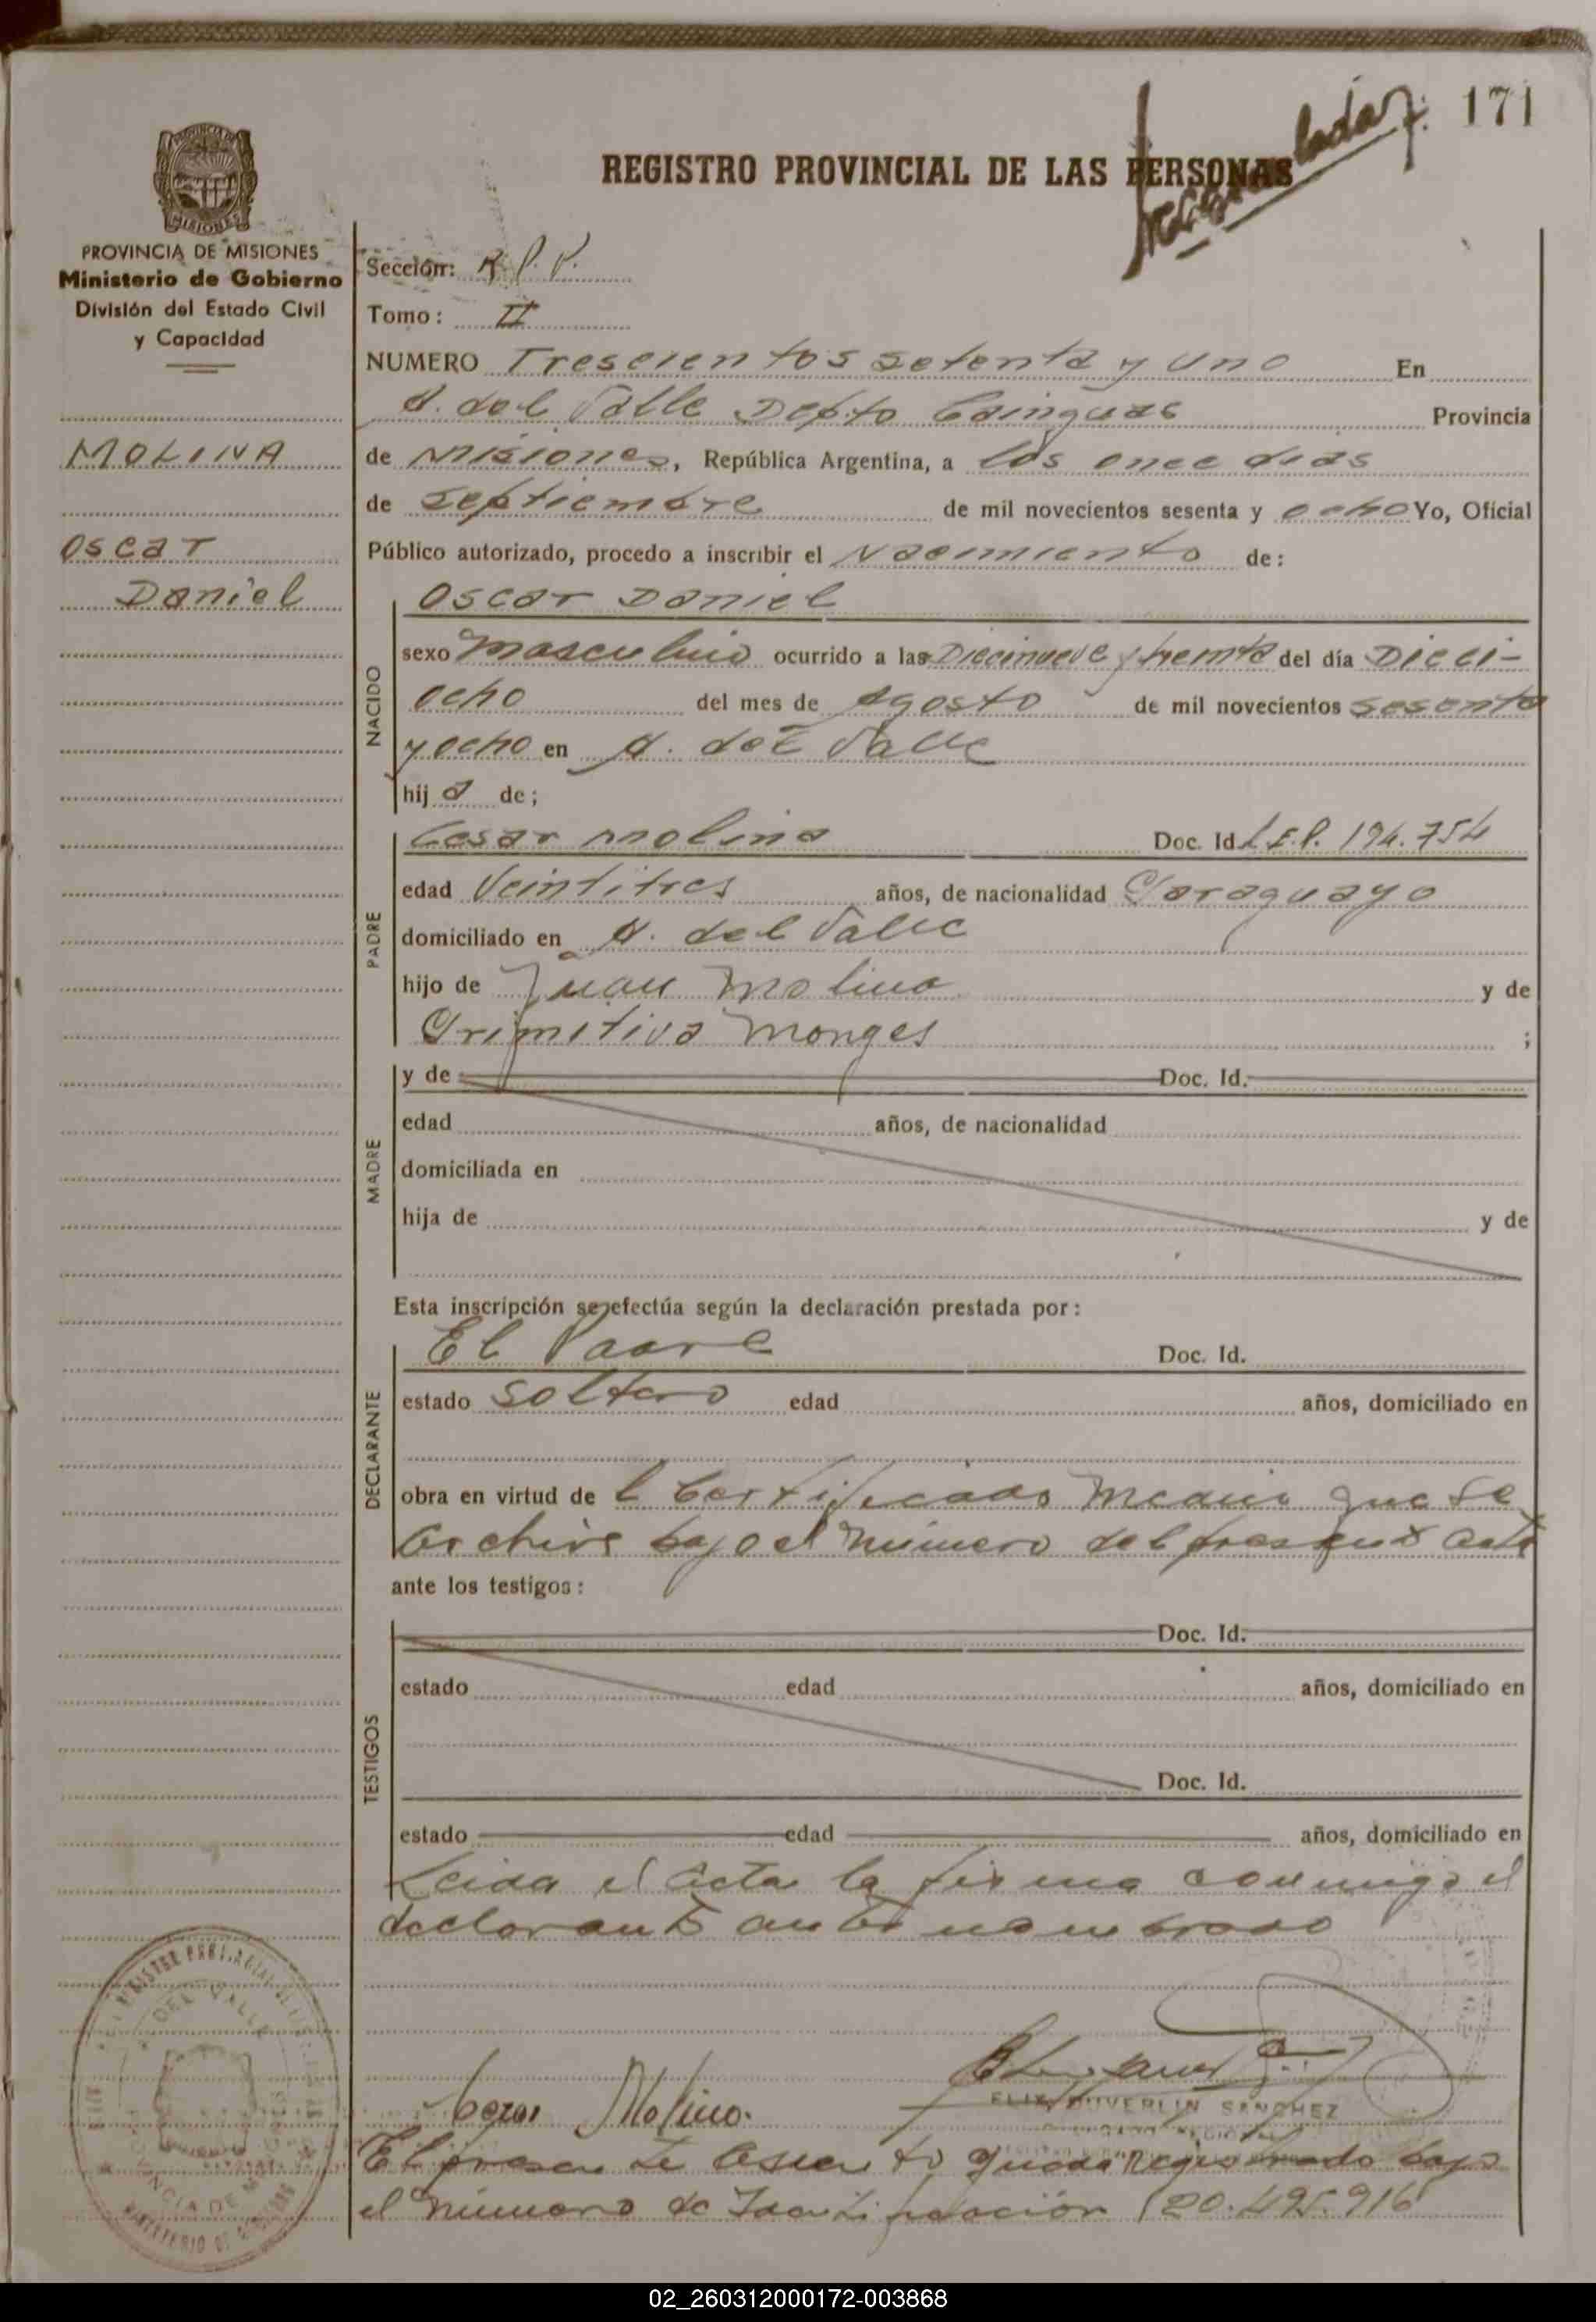 171
REGISTRO PROVINCIAL DE LAS PERSONAS
PROVINCIA DE MISIONES
Ministerio de Gobierno
División del Estado Civil
y Capacidad
MOLINA
Oscar
Daniel
Sección: R.P.P.
Tomo: II
NUMERO Trescientos setenta y uno En
A. del Valle Depto Cainguas Provincia
de Misiones, República Argentina, a los once dias
de septiembre de mil novecientos sesenta y ocho Yo, Oficial
Público autorizado, procedo a inscribir el Nacimiento de:
NACIDO
Oscar Daniel
sexo Masculino ocurrido a las Diecinueve y treinta del día Dieci-
ocho del mes de Agosto de mil novecientos sesenta
y ocho en A. del Valle
hij o de;
PADRE
Cesar Molina Doc. Id. 194.754
edad Veintitres años, de nacionalidad Paraguayo
domiciliado en A. del Valle
hijo de Juan Molina y de
Primitiva Monges ;
MADRE
y de Doc. Id.
edad años, de nacionalidad
domiciliada en
hija de y de
Esta inscripción se efectúa según la declaración prestada por:
DECLARANTE
El Padre Doc. Id.
estado soltero edad años, domiciliado en
obra en virtud de l Certificado Medico que se
archiva bajo el número del presente acta
ante los testigos:
TESTIGOS
Doc. Id.
estado edad años, domiciliado en
Doc. Id.
estado edad años, domiciliado en
Leida el acta la firma conmigo el
declarante ante nombrado
Cesar Molina.
SANCHEZ
El presente asiento queda registrado bajo
el número de Identificación 20.495.916
02_260312000172-003868